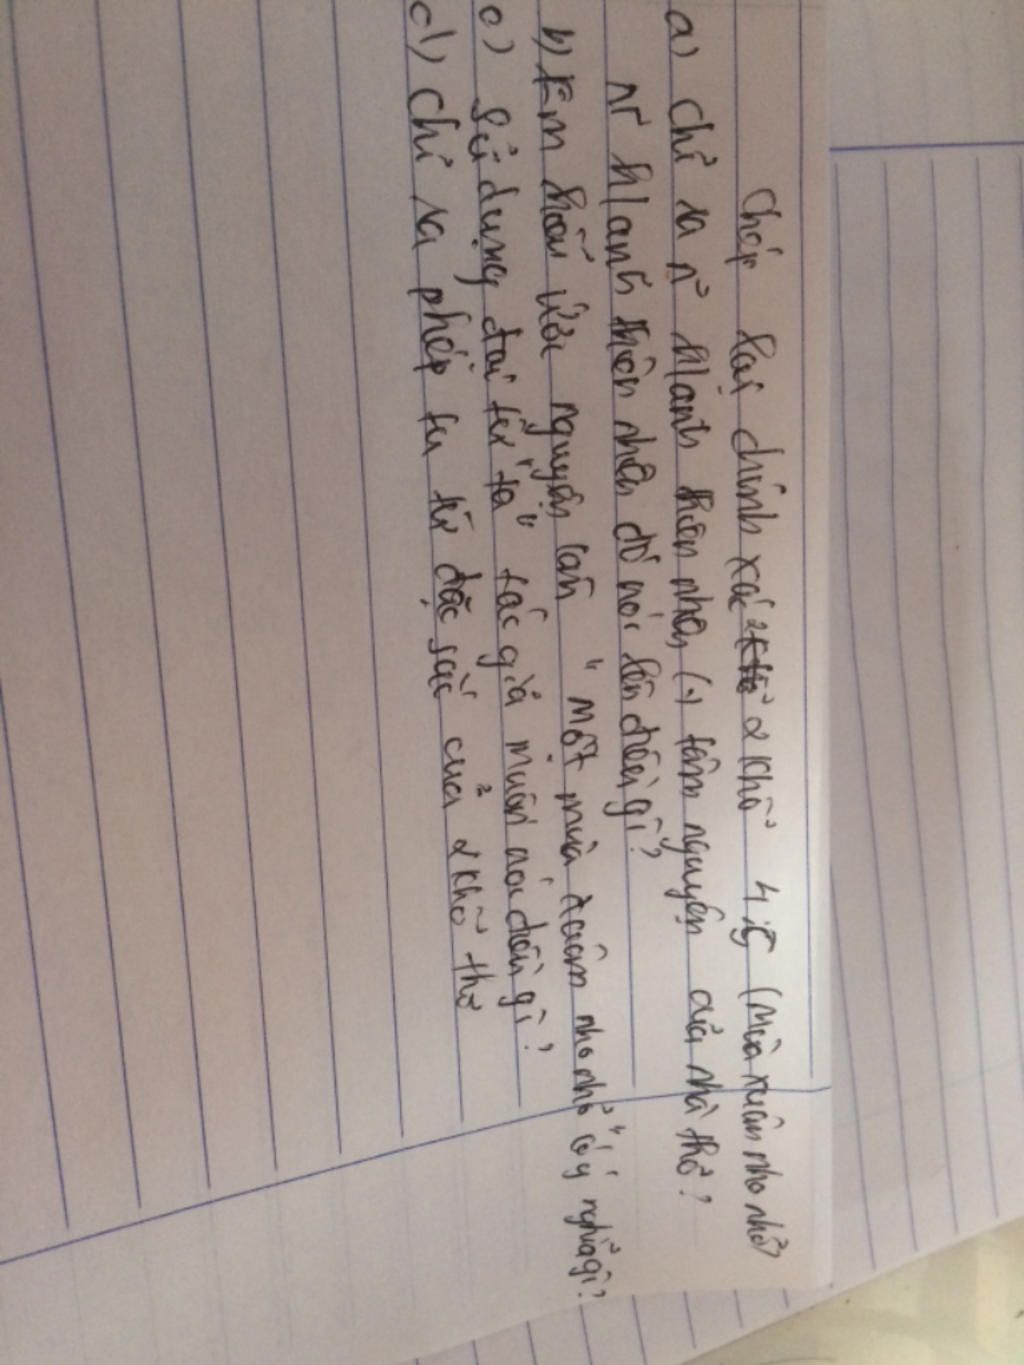 Chép lại chính xác 2 khổ 4,5 (Mùa xuân nho nhỏ)
a) Chỉ ra n~ h/ảnh thiên nhiên (.) tâm nguyện của nhà thơ?
n~ h/ảnh thiên nhiên đó nói lên điều gì?
b) Em hiểu ước nguyện làm "một mùa xuân nho nhỏ" có ý nghĩa gì?
c) Sử dụng đại từ "ta" tác giả muốn nói điều gì?
d) Chỉ ra phép tu từ đặc sắc của 2 khổ thơ